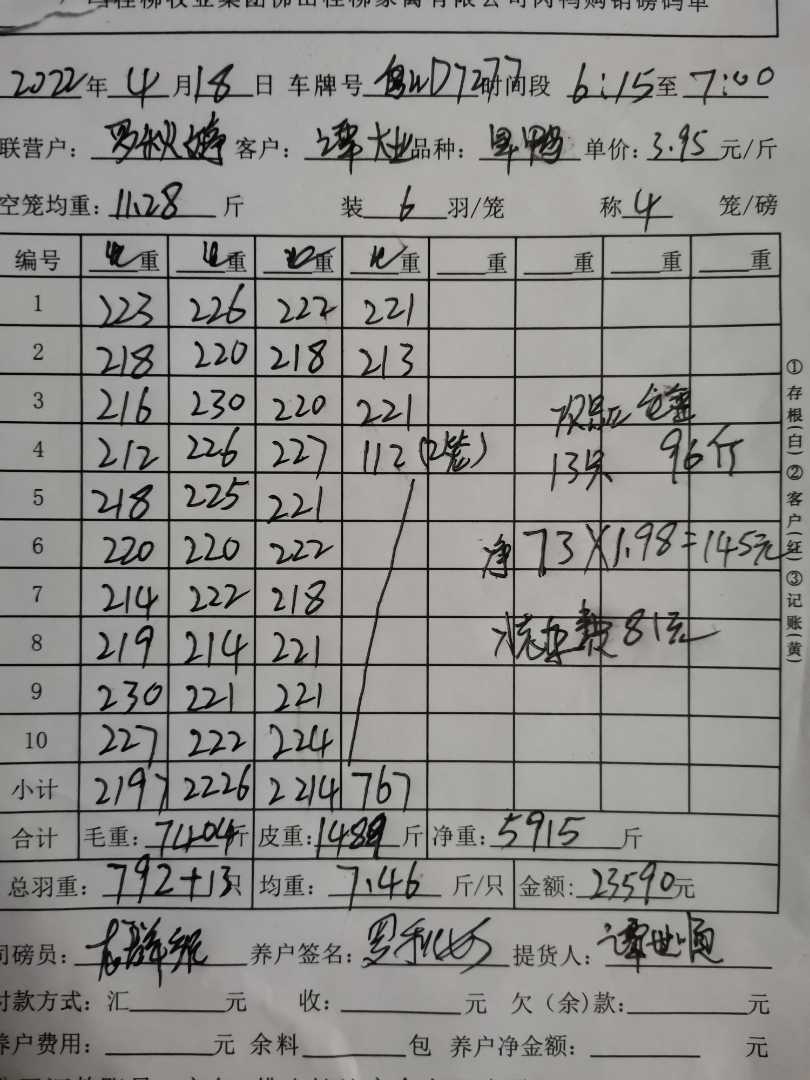 广西桂柳牧业集团佛山桂柳家禽有限公司肉鸭购销磅码单
2022年 4 月 18 日 车牌号 D7277 时间段 6:15 至 7:00
联营户: 罗秋婷 客户: 谭大业 品种: 旱鸭 单价: 3.95 元/斤
空笼均重: 11.28 斤 装 6 羽/笼 称 4 笼/磅
编号 重 重 重 重 重 重 重 重
1 223 226 222 221
2 218 220 218 213
3 216 230 220 221 次品 毛重
4 212 226 227 112 (2笼) 13只 96斤
5 218 225 221
6 220 220 222 净 73×1.98=145元
7 214 222 218
8 219 214 221 洗车费 81元
9 230 221 221
10 227 222 224
小计 2197 2226 2214 767
合计 毛重: 7404 斤 皮重: 1489 斤 净重: 5915 斤
总羽重: 792+13 只 均重: 7.46 斤/只 金额: 23590 元
司磅员: 养户签名: 提货人: 谭世
付款方式: 汇 元 收: 元 欠(余)款: 元
养户费用: 元 余料 包 养户净金额: 元
①存根(白)②客户(红)③记账(黄)